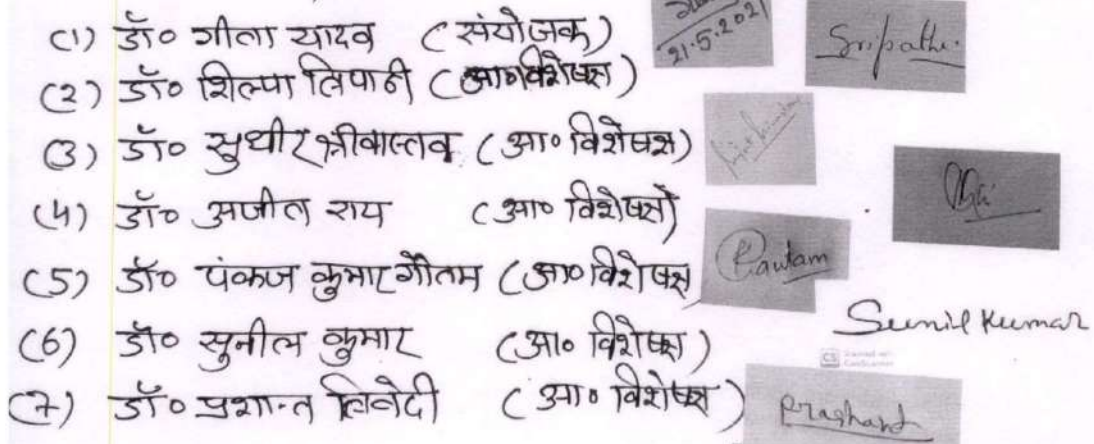 (1) डॉ० गीता यादव (संयोजक) 21.5.2021
(2) डॉ० शिल्पा त्रिपाठी (आ०विशेषज्ञ) Sripathi
(3) डॉ० सुधीर श्रीवास्तव (आ० विशेषज्ञ)
(4) डॉ० अजीत राय (आ० विशेषज्ञ)
(5) डॉ० पंकज कुमार गौतम (आ० विशेषज्ञ Gautam
(6) डॉ० सुनील कुमार (आ० विशेषज्ञ) Sunil Kumar
CS Scanned with CamScanner
(7) डॉ० प्रशान्त त्रिवेदी (आ० विशेषज्ञ) Prashant